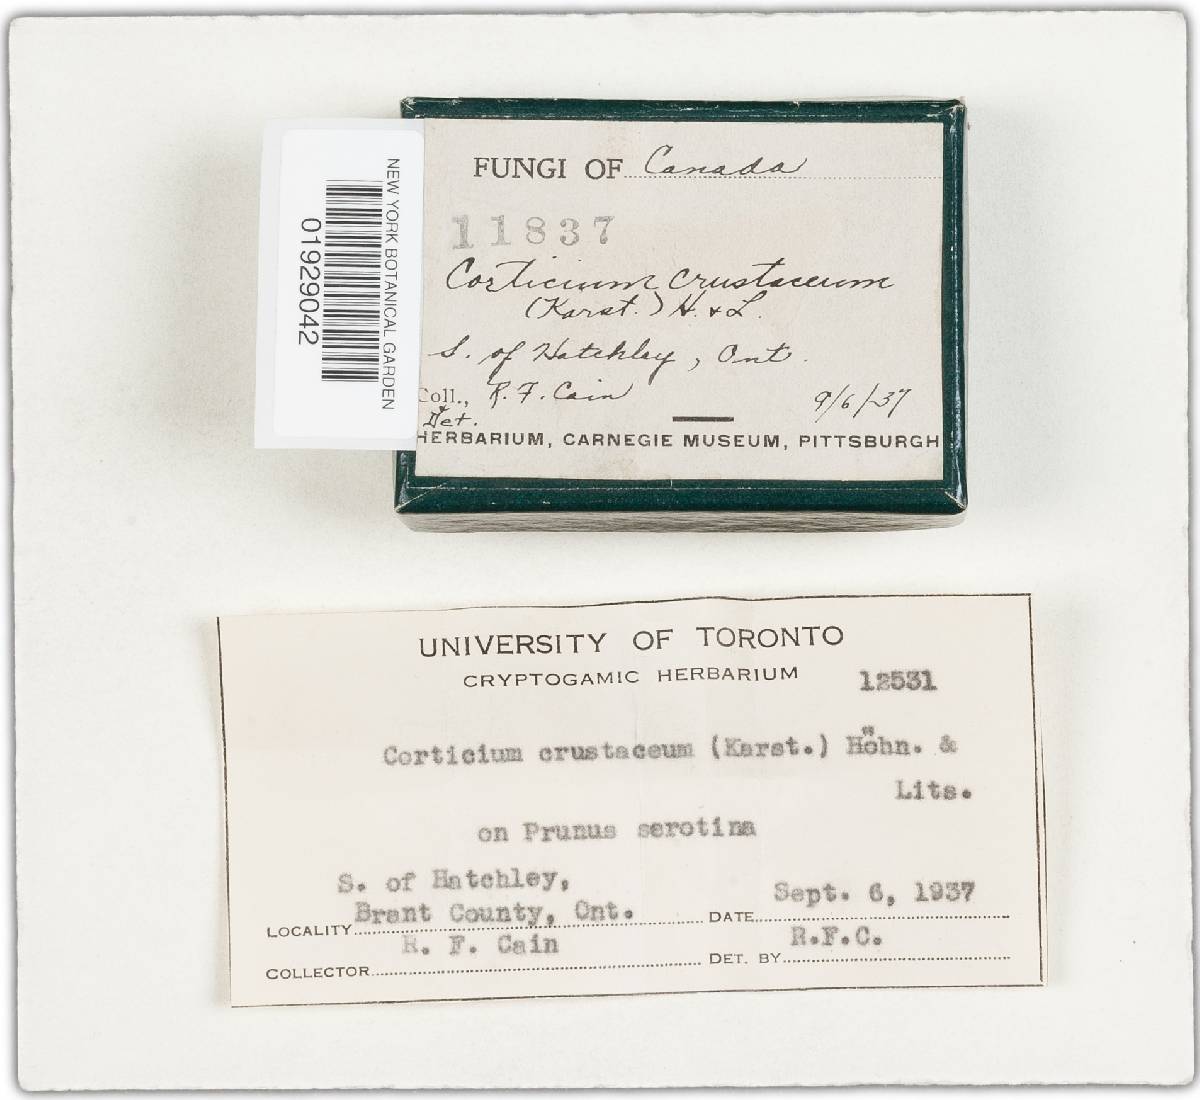 NEW YORK BOTANICAL GARDEN
01929042
FUNGI OF Canada
11837
Corticium crustaceum
(Karst.) H. & L.
S. of Hatchley, Ont.
Coll., R. F. Cain 9/6/37
& Det.
HERBARIUM, CARNEGIE MUSEUM, PITTSBURGH
UNIVERSITY OF TORONTO
CRYPTOGAMIC HERBARIUM
12531
Corticium crustaceum (Karst.) Höhn. &
Lits.
on Prunus serotina
S. of Hatchley,
LOCALITY Brant County, Ont. DATE Sept. 6, 1937
COLLECTOR R. F. Cain DET. BY R.F.C.